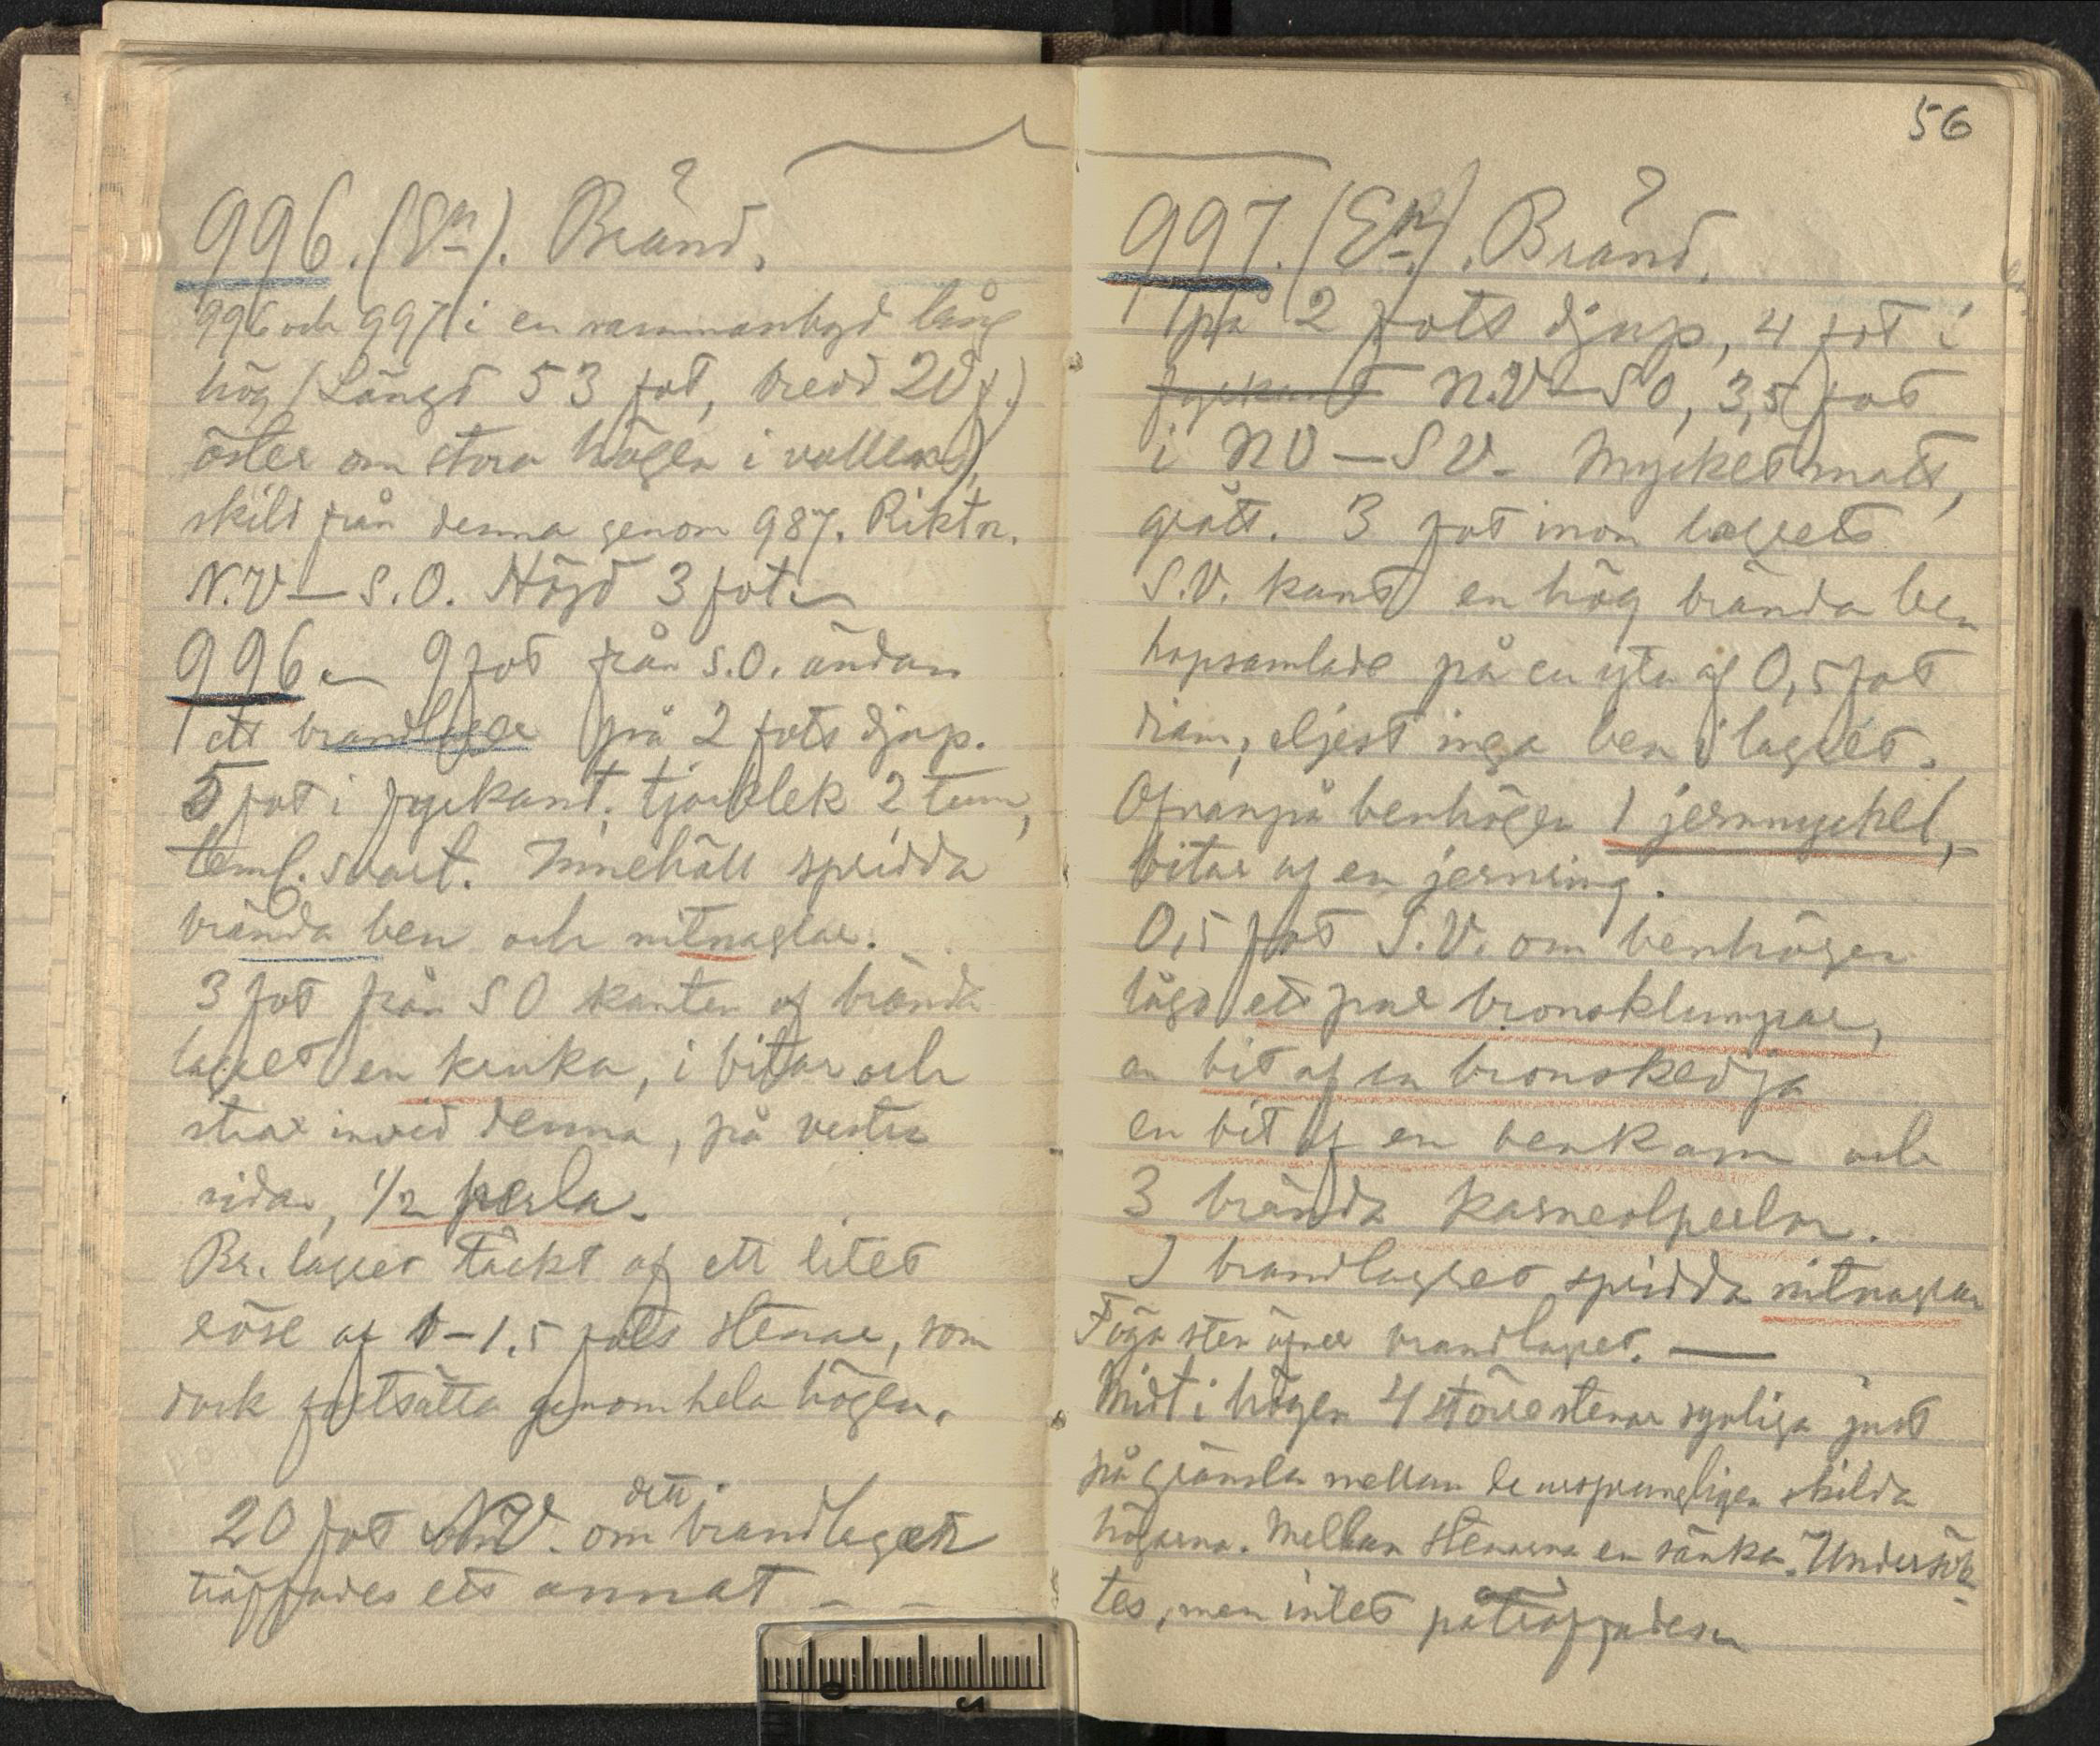 996. (En). Bränd.
?
996 och 997 i en sammanbygd lång
hög (Längd 53 fot, bredd 20 f.)
öster om stora högen i vallen),
skild från denna genom 987. Riktn.
N.V – S.O. Höjd 3 fot. –
996. – 9 fot från S.O. ändan
ett brandlager på 2 fots djup.
5 fot i fyrkant. tjocklek 2 tum,
teml. svart. Innehöll spridda
brända ben och nitnaglar.
3 fot från SO kanten af brand
lagret en kruka, i bitar och
strax invid denna, på vestra
sidan, 1/2 perla.
Br. lagret täckt af ett litet
röse af 1–1.5 fots stenar, som
dock fortsätta genom hela högen.
20 fot N.V. om detta brandlager
träffades ett annat – –
56
997. (En). Bränd.
?
på 2 fots djup, 4 fot i
fyrkant N.V – SO, 3,5 fot
i NO – SV. Mycket matt,
grått. 3 fot inom lagrets
S.V. kant en hög brända ben
hopsamlade på en yta af 0,5 fot
diam; eljest inga ben i lagret.
Ofvanpå benhögen 1 jernnyckel,
bitar af en jernring.
0,5 fot S.V. om benhögen
lågo ett par bronsklumpar,
en bit af en bronskedja
en bit af en benkam och
3 brända karneolperlor.
I brandlagret spridda nitnaglar
Föga sten öfver brandlagret. —
Midt i högen 4 större stenar synliga just
på gränsen mellan de ursprungligen skilda
högarna. Mellan stenarna en sänka. Undersök-
tes, men intet påträffades –